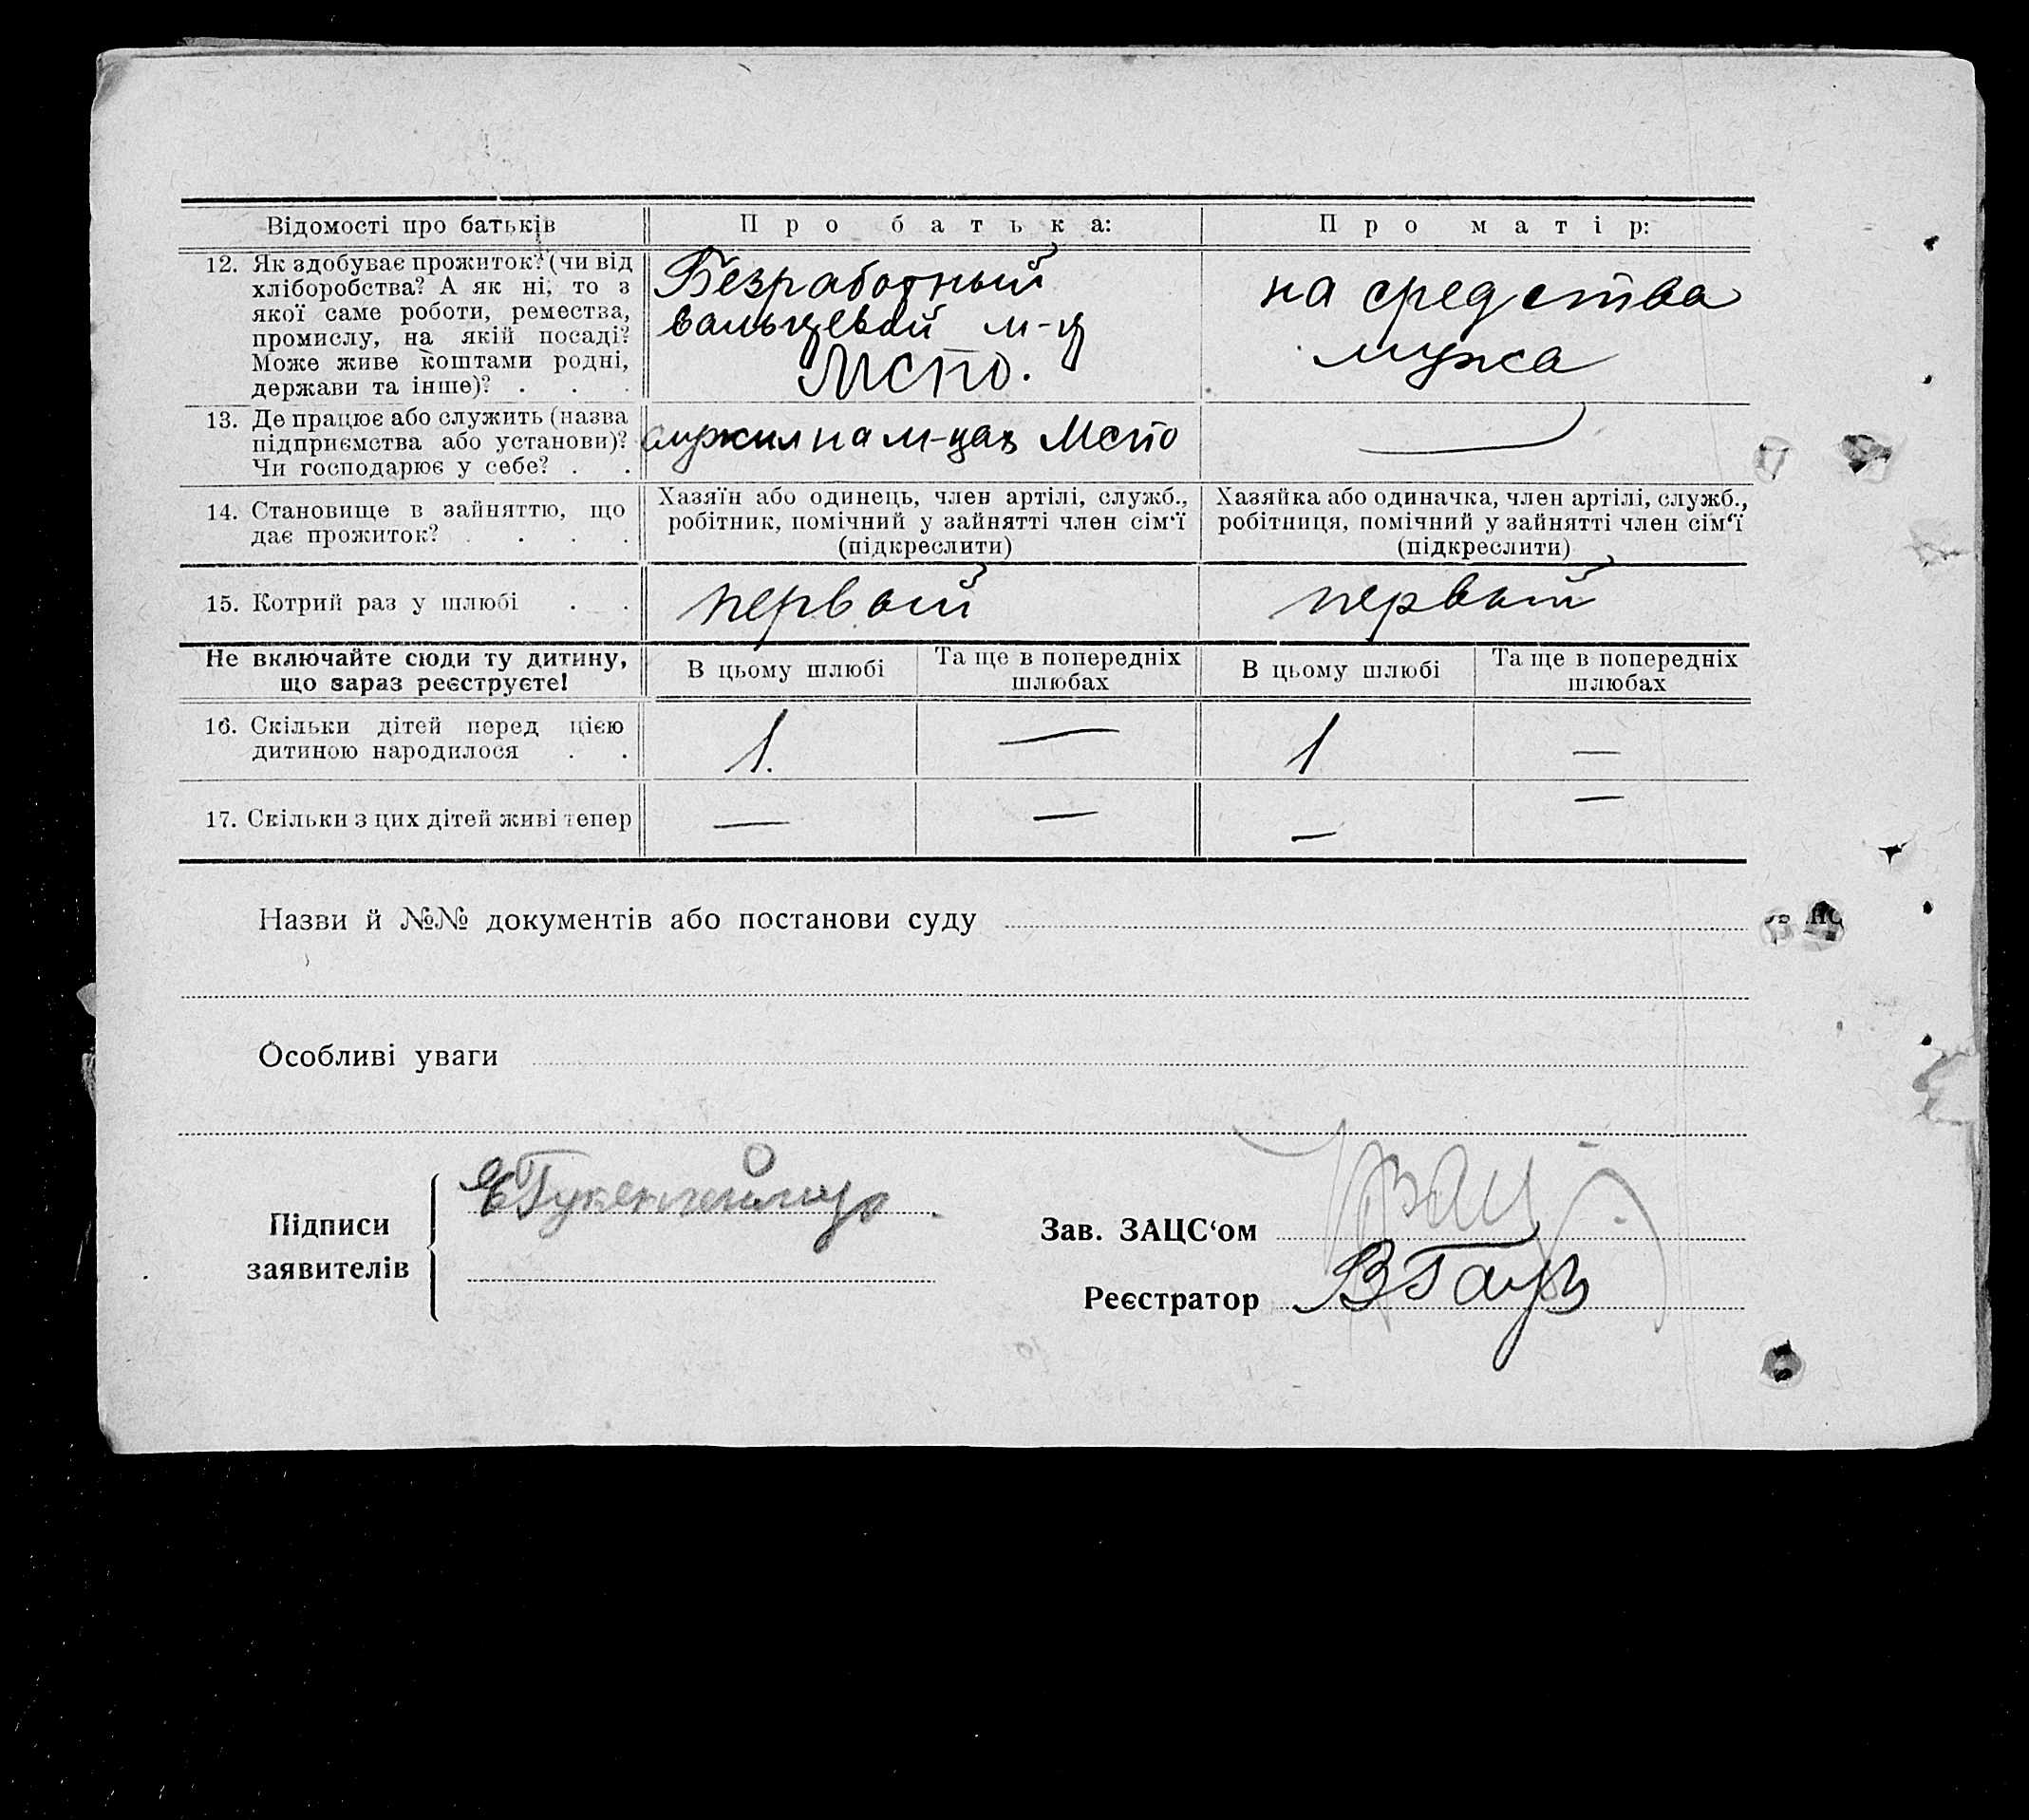 Відомості про батьків
Про батька:
Про матір:
12. Як здобуває прожиток? (чи від
хліборобства? А як ні, то з
якої саме роботи, ремества,
промислу, на якій посаді?
Може живе коштами родні,
держави та інше)? . . .
Безработный
вальцевой м-ц
МСПО.
на средства
мужа
13. Де працює або служить (назва
підприємства або установи)?
Чи господарює у себе? . .
служил на м-цах Мспо
—
14. Становище в зайняттю, що
дає прожиток? . . . .
Хазяїн або одинець, член артілі, служб.,
робітник, помічний у зайнятті член сім‘ї
(підкреслити)
Хазяйка або одиначка, член артілі, служб.,
робітниця, помічний у зайнятті член сім‘ї
(підкреслити)
15. Котрий раз у шлюбі . .
первый
первый
Не включайте сюди ту дитину,
що зараз реєструєте!
В цьому шлюбі
Та ще в попередніх
шлюбах
В цьому шлюбі
Та ще в попередніх
шлюбах
16. Скільки дітей перед цією
дитиною народилося . .
1.
—
1
—
17. Скільки з цих дітей живі тепер
—
—
—
—
Назви й №№ документів або постанови суду
Особливі уваги
Підписи
заявителів
Зав. ЗАЦС‘ом
Реєстратор